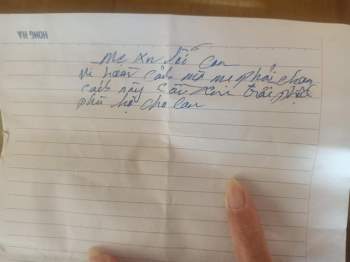 HONG HA
Mẹ xn lỗi con
Vì hoàn cảnh mà mẹ phải chọn
cách này Cầu xin trời phật
phù hộ cho con